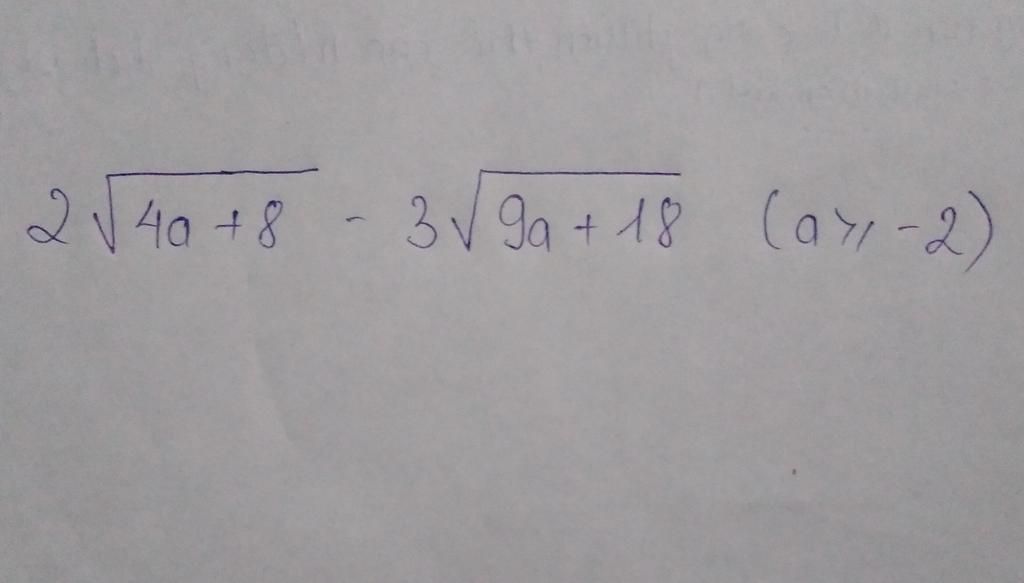 2√(4a+8) - 3√(9a+18) (a ≥ -2)